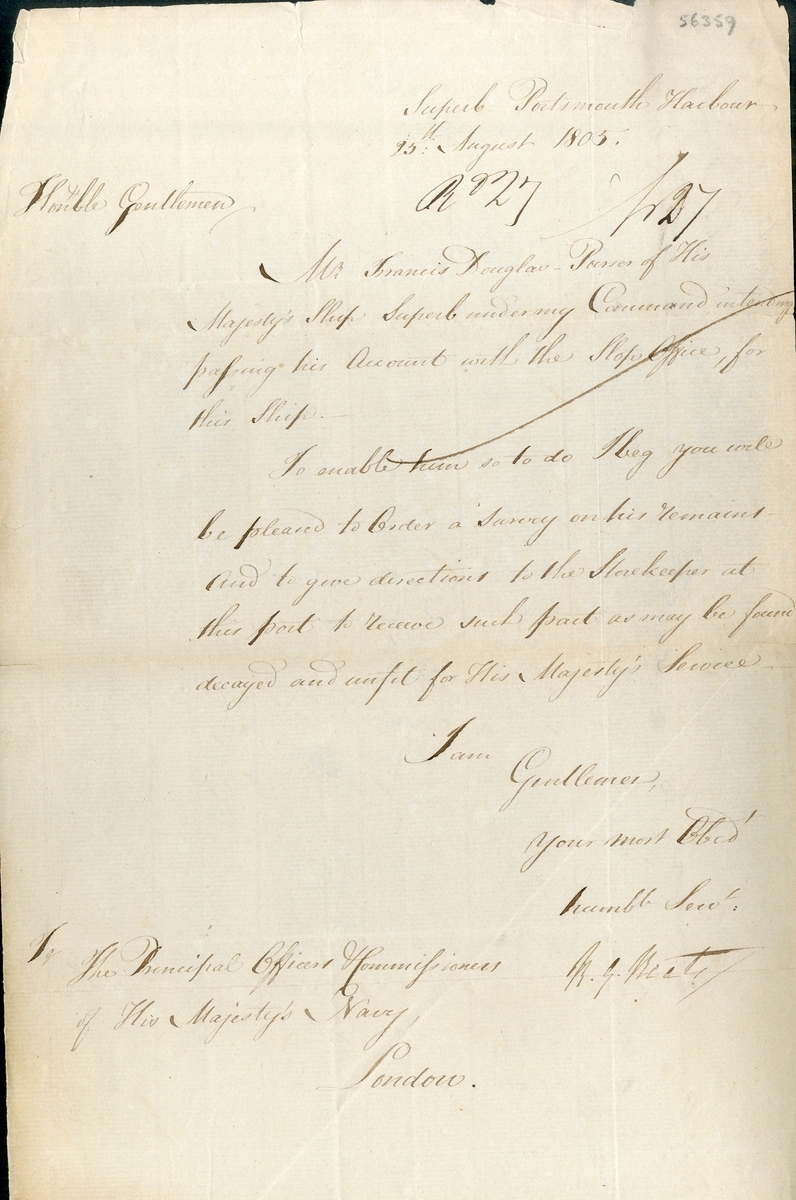 56359
Superb Portsmouth Harbour
25th August 1805.
Honble Gentlemen
Rd 27 27
Mr Francis Douglas - Purser of His
Majesty's Ship Superb under my Command intending
passing his Account with the Slop Office, for
this Ship.—
To enable him so to do I beg you will
be pleased to Order a Survey on his remains -
And to give directions to the Storekeeper at
this port to receive such part as may be found
decayed and unfit for His Majesty's Service —
I am
Gentlemen,
Your most Obedt
humble Servt:
R. G. Keats
To
The Principal Officers & Commissioners
of His Majesty's Navy,
London.